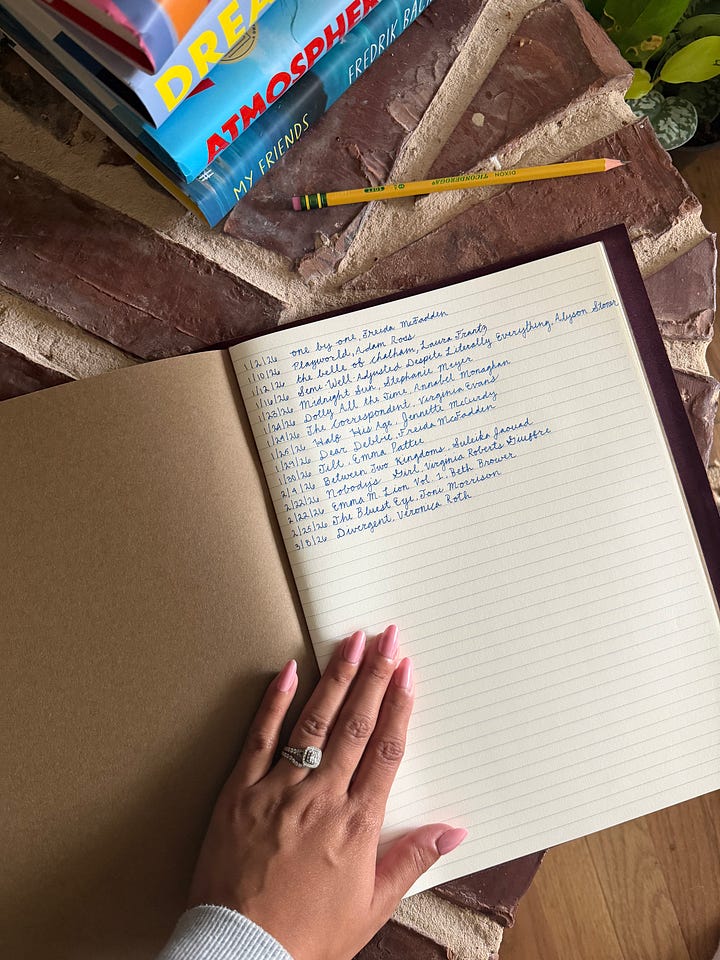 DREA
ATMOSPHER
MY FRIENDS FREDRIK BAC
DIXON TICONDEROGA
SOFT
1/2/26 one by one, Freida McFadden
1/10/26 Playworld, Adam Ross
1/12/26 the belle of chatham, Laura Frantz
1/16/26 Semi-Well-Adjusted Despite Literally Everything, Alyson Stoner
1/23/26 Midnight Sun, Stephanie Meyer
Dolly All the Time, Annabel Monaghan
The Correspondent, Virginia Evans
1/25/26 Half His Age, Jennette McCurdy
1/29/26 Dear Debbie, Freida McFadden
1/30/26 Tilt, Emma Pattee
2/9/26 Between Two Kingdoms, Suleika Jaouad
2/22/26 Nobody's Girl, Virginia Roberts Giuffre
2/22/26 Emma M. Lion Vol. 1, Beth Brower
2/25/26 The Bluest Eye, Toni Morrison
3/8/26 Divergent, Veronica Roth